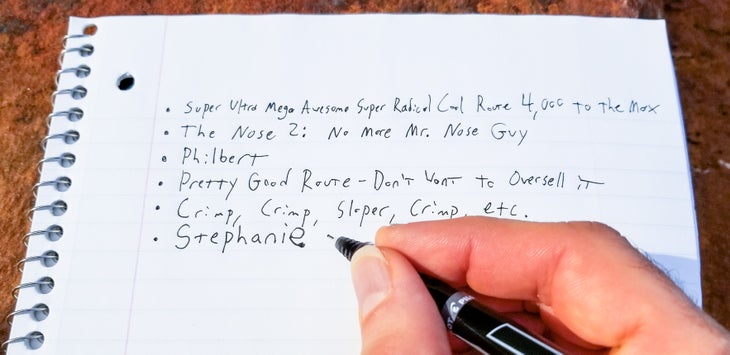 • Super Ultra Mega Awesome Super Radical Cool Route 4,000 to the Max
• The Nose 2: No More Mr. Nose Guy
• Philbert
• Pretty Good Route - Don't Want to Oversell it
• Crimp, Crimp, Sloper, Crimp, etc.
• Stephanie